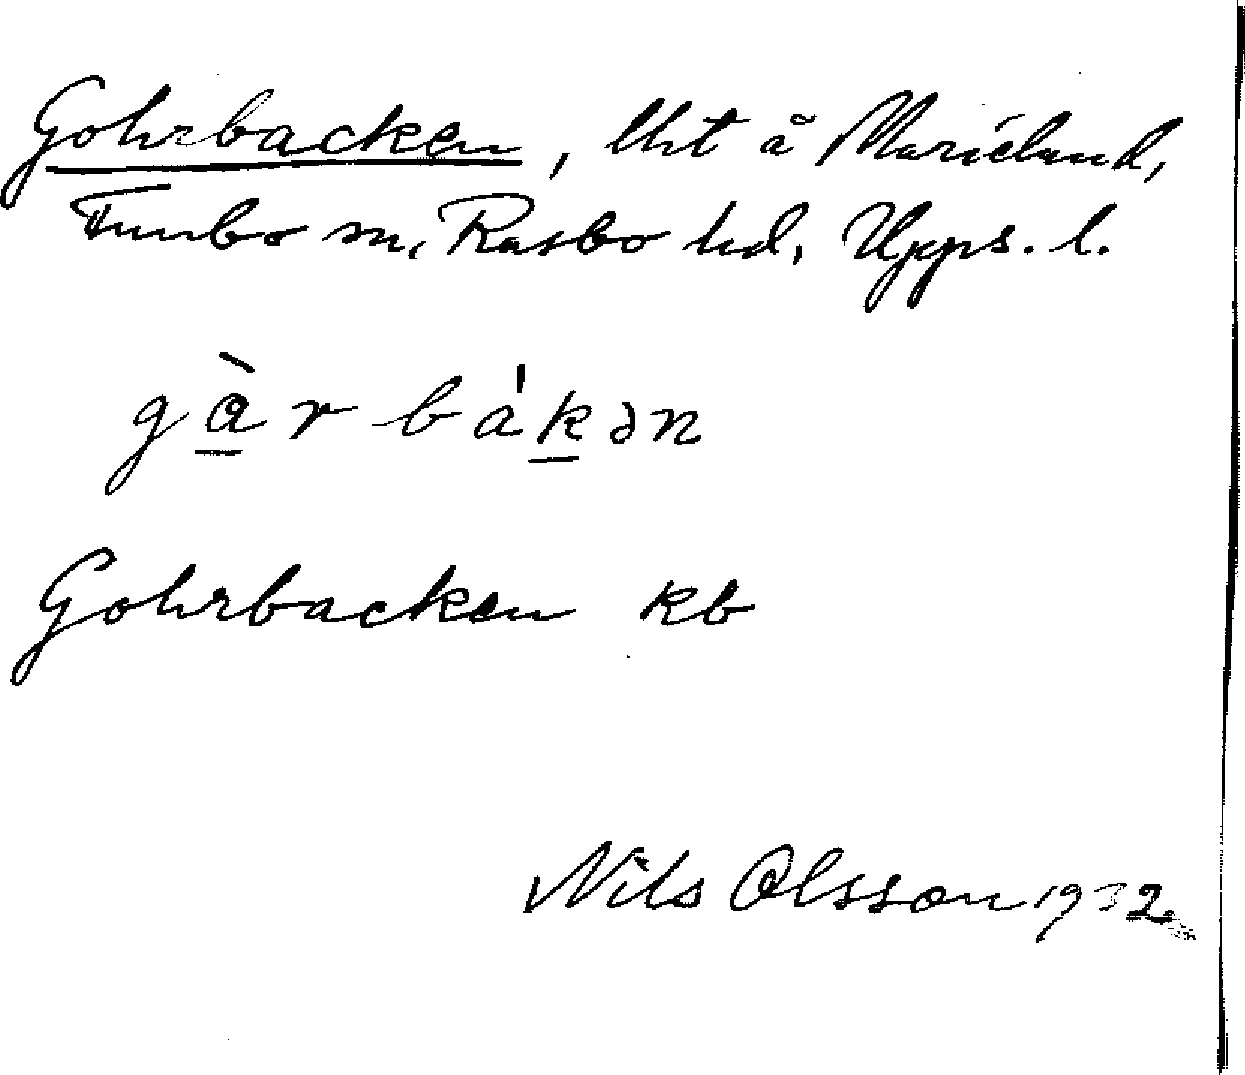 Gohrbacken, lht å Marieland,
Funbo sn, Rasbo hd, Upps. l.
gàrbá'kən
Gohrbacken kb
Nils Olsson 1932